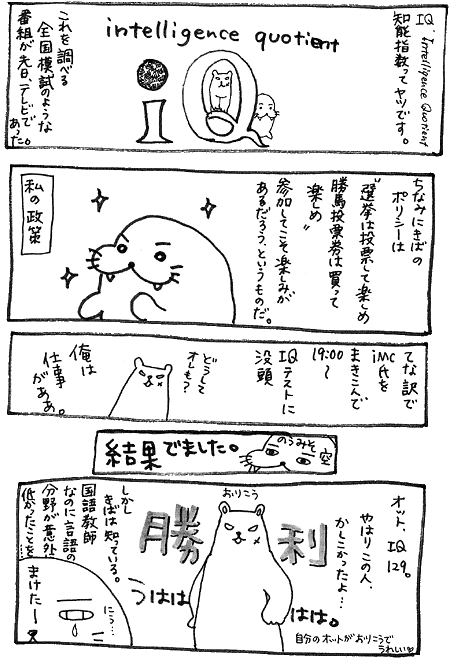 IQ、Intelligence Quotient
知能指数ってヤツです。
intelligence quotient
iQ
これを調べる
全国模試のような
番組が先日、テレビで
あった。
ちなみにきばの
ポリシーは
“選挙は投票して楽しめ
勝馬投票券は買って
楽しめ”
参加してこそ楽しみが
あるだろう、というものだ。
私の政策
てな訳で
iMC氏を
まきこんで
19:00〜
IQテストに
没頭
どうして
オレも?
俺は
仕事
がああ。
結果でました。
のうみそ
空
オット、IQ
129。
やはりこの人、
かしこかったよ…
おりこう
勝利
うはは
はは。
自分のオットがおりこうで
うれしい
しかし
きばは知っている。
国語教師
なのに言語の
分野が意外に
低かったことを…
にう…
まけたー